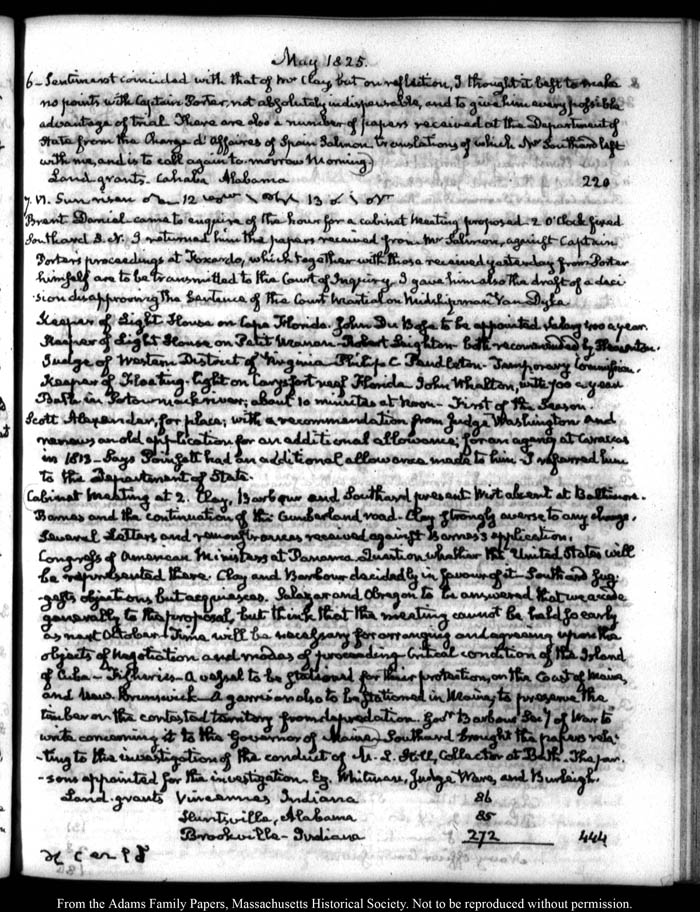 May 1825.
6 – Sentiment coincided with that of Mr Clay, but on reflection, I thought it best to make
no points with Captain Porter, not absolutely indispensable, and to give him every possible
advantage of trial. There are also a number of papers received at the Department of
State from the Chargé d'Affaires of Spain Salmon translations of which Mr Southard left
with me, and is to call again to-morrow Morning)
Land-grants. Cahaba Alabama 220
7. VI. Sun risen 12 13
Brent Daniel came to enquire of the hour for a Cabinet Meeting proposed. 2 O'Clock fixed
Southard S. N. I returned him the papers received from Mr Salmon, against Captain
Porters proceedings at Foxardo, which together with those received yesterday from Porter
himself are to be transmitted to the Court of Inquiry. I gave him also the draft of a deci-
-sion disapproving the Sentence of the Court Martial on Midshipman Van Dyke
Keeper of Light House on Cape Florida. John Du Bose to be appointed. Salary 400 a year.
Keeper of Light House on Petit Manan. Robert Leighton. both recommended by
Judge of Western District of Virginia Philip C Pendleton. Temporary Commission.
Keeper of Floating-light on Carysfort reef Florida John Whalton, with 700 a year
Bath in Potowmack river; about 10 minutes at Noon – First of the Season.
Scott Alexander, for place; with a recommendation from Judge Washington and
renews an old application for an additional allowance; for an agency at Caraccas
in 1813. Says Poinsett had an additional allowance made to him. I referred him
to the Department of State.
Cabinet Meeting at 2. Clay, Barbour and Southard present. Wirt absent at Baltimore.
Barnes and the continuation of the Cumberland road. Clay strongly averse to any change.
Several Letters and remonstrances received against Barnes's application.
Congress of American Ministers at Panama. Question whether the United States will
be represented there. Clay and Barbour decidedly in favour of it – Southard sug-
-gests objections, but acquiesces. Salazar and Obregon to be answered that we accede
generally to the proposal, but think that the meeting cannot be held so early
as next October. Time will be necessary for arranging and agreeing upon the
objects of Negotiation and modes of proceeding. Critical condition of the Island
of Cuba – Fisheries – A vessel to be stationed for their protection, on the Coast of Maine,
and New Brunswick – A garrison also to be stationed in Maine, to preserve the
timber on the contested territory from depredation. Govr Barbour Secy of War to
write concerning it to the Governor of Maine) Southard brought the papers rela-
-ting to the investigation of the conduct of M. L. Hill, Collector at Bath. The per-
-sons appointed for the investigation. Ez. Whitman, Judge Ware, and Burleigh.
Land-grants Vincennes Indiana 86
Huntsville, Alabama 85
Brookville – Indiana 272 444